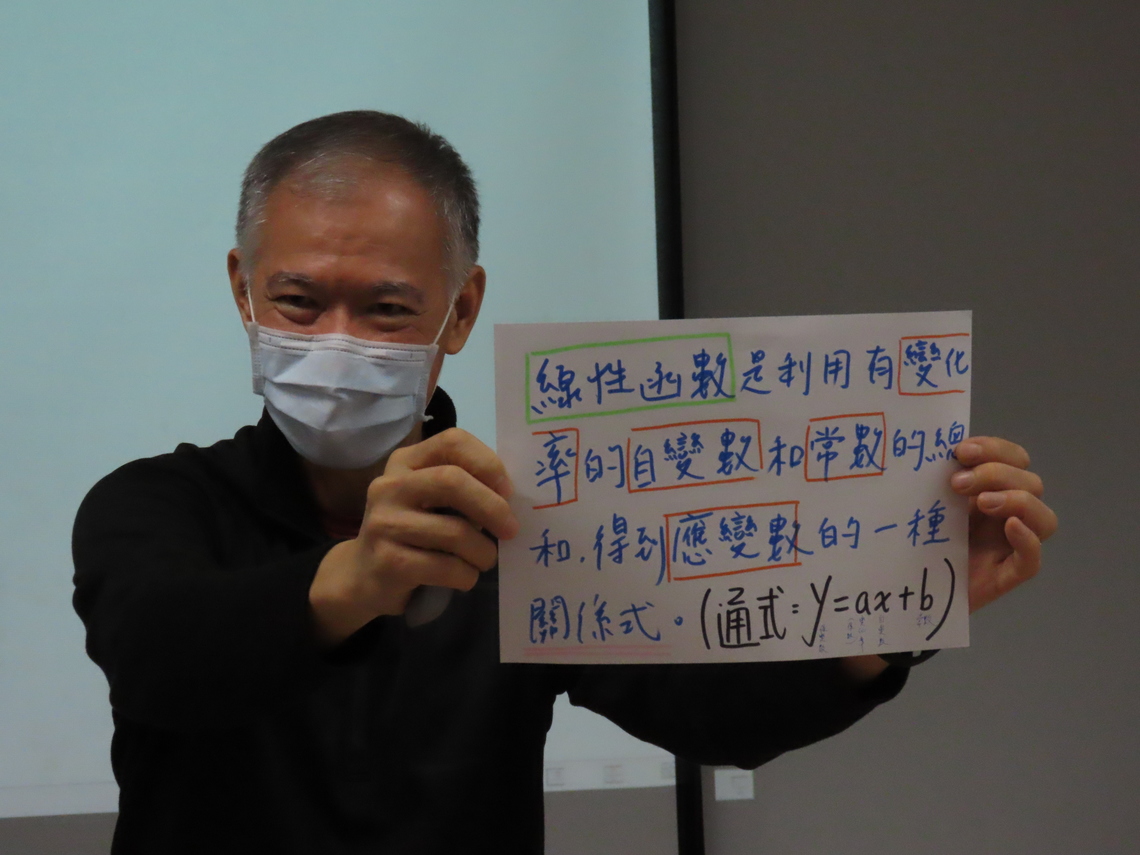 線性函數是利用有變化
率的自變數和常數的總
和,得到應變數的一種
關係式。(通式:y=ax+b)